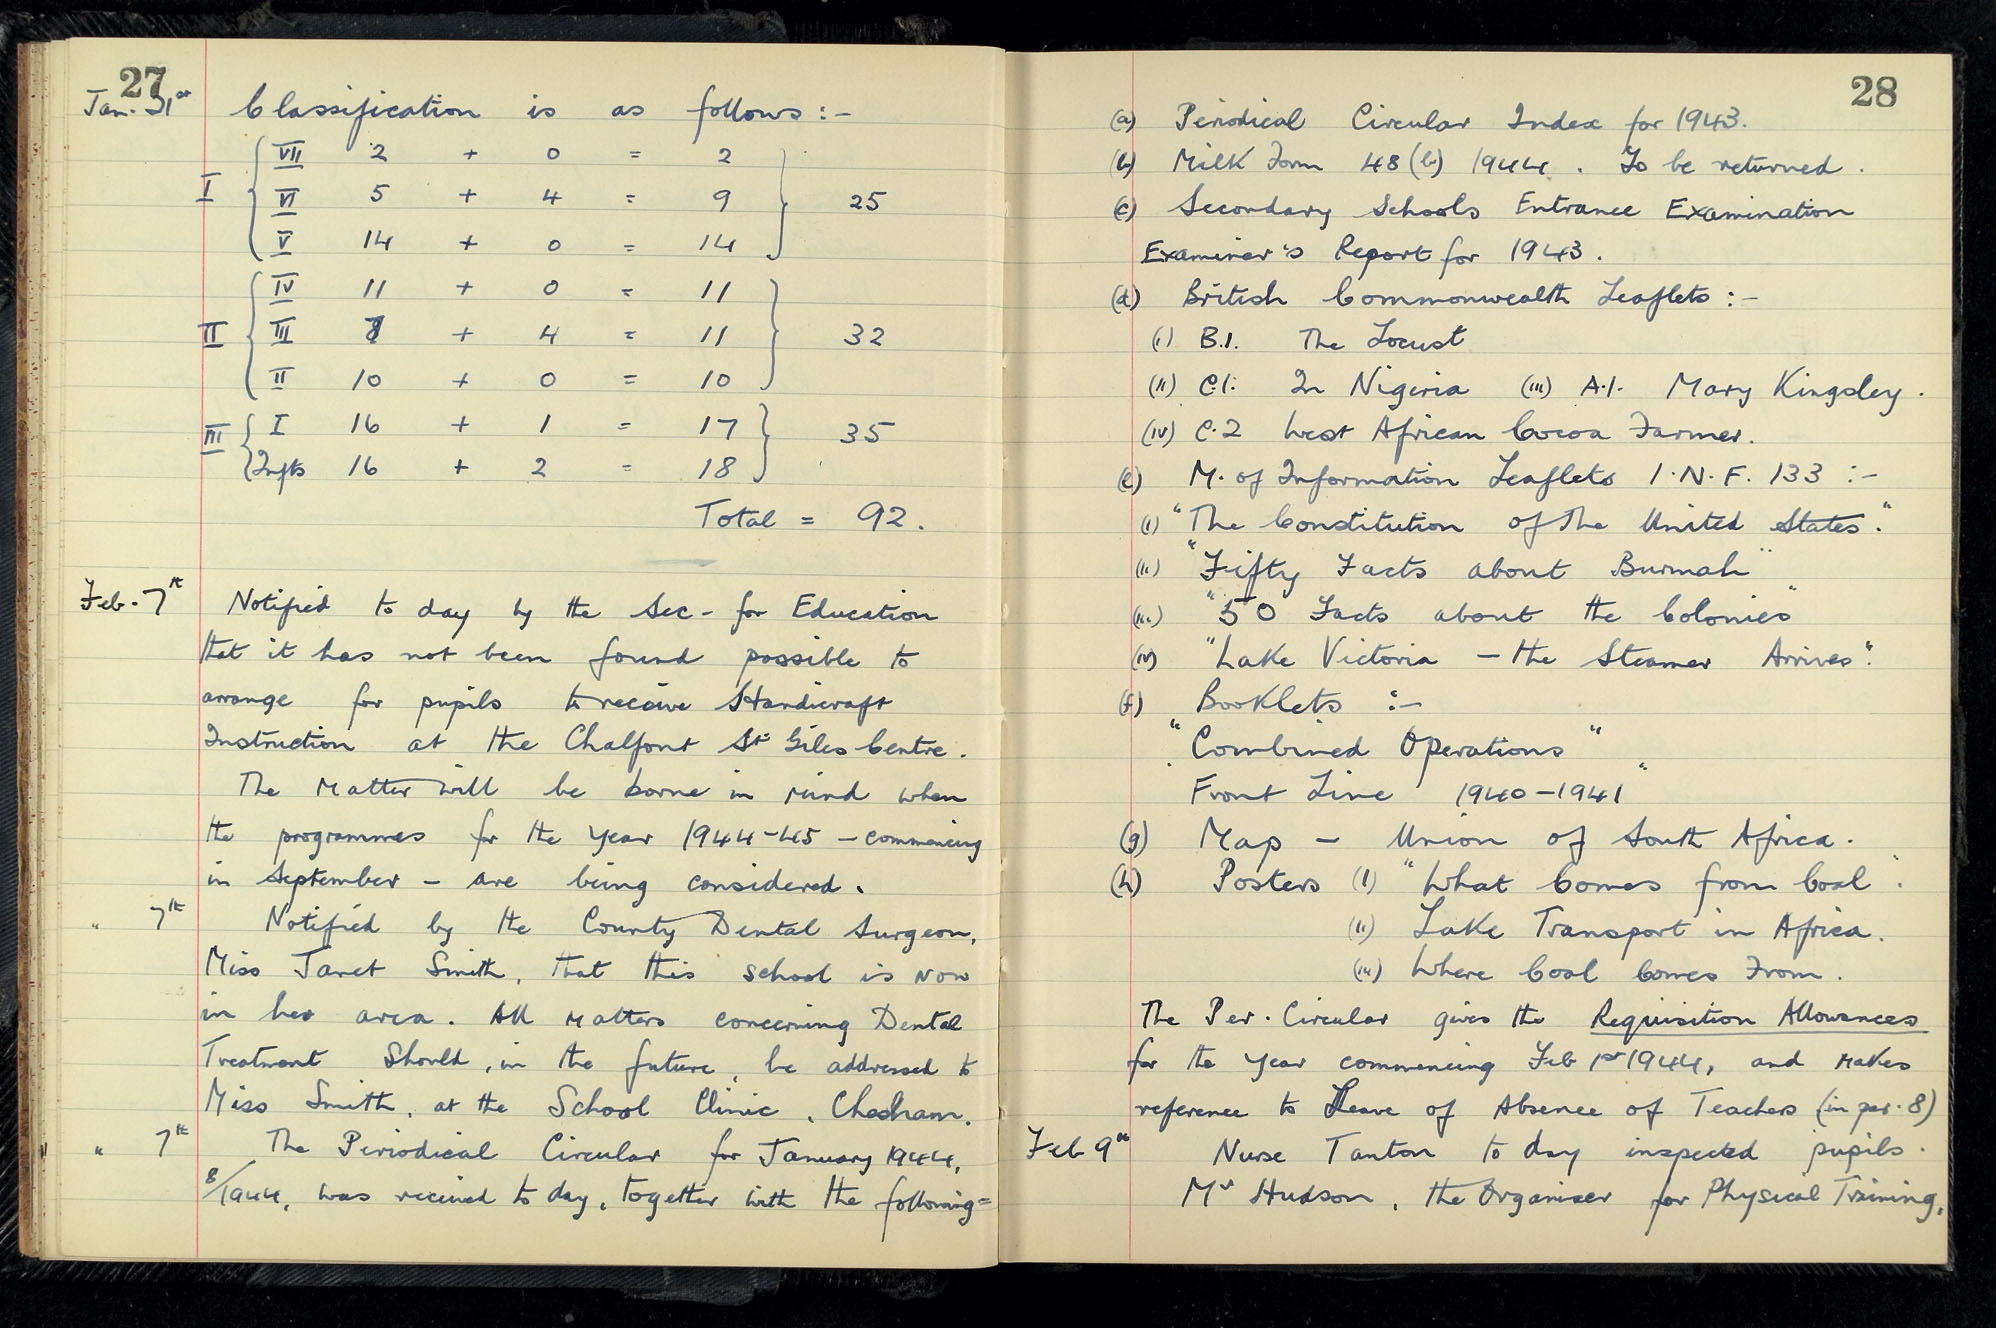 27
Jan. 31st Classification is as follows :-
VII 2 + 0 = 2
I VI 5 + 4 = 9 25
V 14 + 0 = 14
IV 11 + 0 = 11
II III 7 + 4 = 11 32
II 10 + 0 = 10
III I 16 + 1 = 17 35
Infts 16 + 2 = 18
Total = 92.
Feb. 7th Notified to day by the Sec- for Education
that it has not been found possible to
arrange for pupils to receive Handicraft
Instruction at the Chalfont St Giles Centre.
The matter will be borne in mind when
the programmes for the year 1944-45 - commencing
in September - are being considered.
" 7th Notified by the County Dental Surgeon,
Miss Janet Smith, that this school is now
in her area. All matters concerning Dental
Treatment should, in the future, be addressed to
Miss Smith, at the School Clinic, Chesham.
" 7th The Periodical Circular for January 1944,
8/1944, was received to day, together with the following=
28
(a) Periodical Circular Index for 1943.
(b) Milk Form 48 (b) 1944. To be returned.
(c) Secondary Schools Entrance Examination
Examiner's Report for 1943.
(d) British Commonwealth Leaflets :-
(i) B.1. The Locust
(ii) C.1. In Nigeria (iii) A.1. Mary Kingsley.
(iv) C.2 West African Cocoa Farmer.
(e) M. of Information Leaflets I.N.F. 133 :-
(i) "The Constitution of the United States."
(ii) "Fifty Facts about Burmah"
(iii) "50 Facts about the Colonies"
(iv) "Lake Victoria - the Steamer Arrives".
(f) Booklets :-
"Combined Operations"
"Front Line 1940-1941"
(g) Map - Union of South Africa.
(h) Posters (i) "What Comes from Coal.
(ii) Lake Transport in Africa.
(iii) Where Coal Comes From.
The Per. Circular gives the Requisition Allowances
for the year commencing Feb 1st 1944, and makes
reference to Leave of Absence of Teachers (in par. 8)
Feb 9th Nurse Tanton to day inspected pupils.
Mr Hudson, the Organiser for Physical Training,